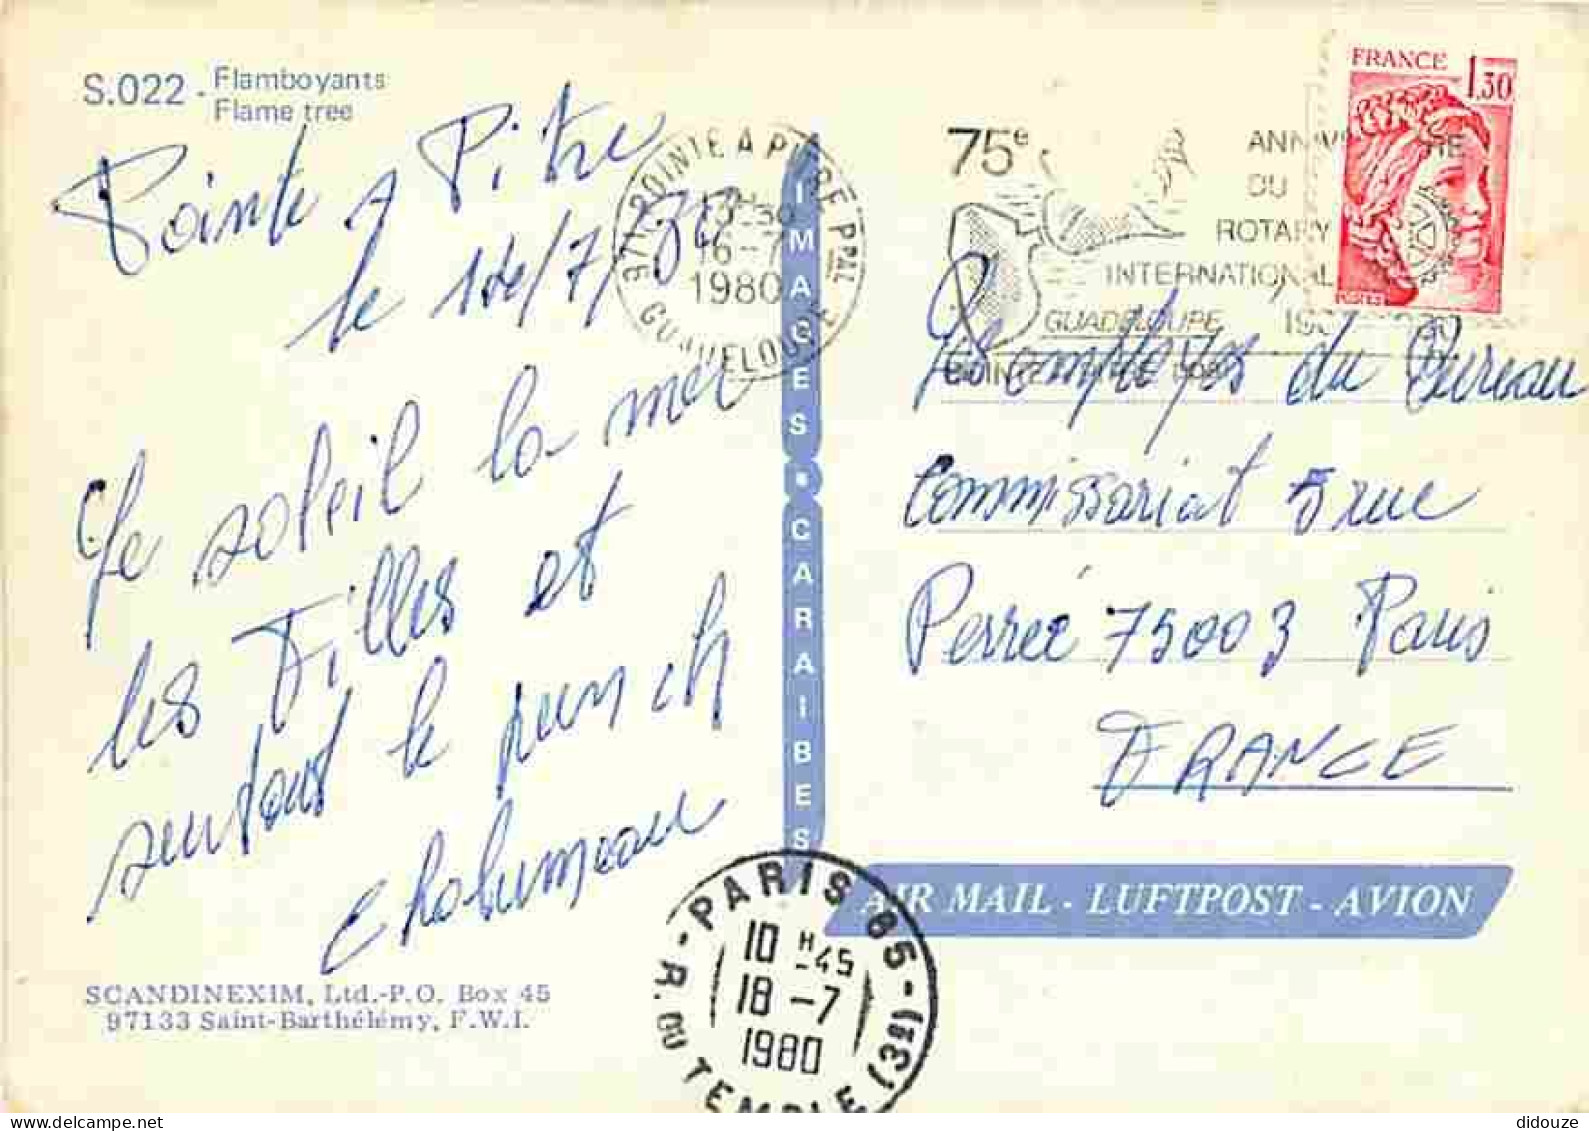 S.022 - Flamboyants
Flame tree
Pointe A Pitre
le 14/7/80
Le soleil la mer
les Filles et
surtout le punch
Cholumeau
SCANDINEXIM, Ltd.-P.O. Box 45
97133 Saint-Barthélémy, F.W.I.
IMAGES • CARAIBES
971 POINTE A PITRE PPAL
16-7
1980
GUADELOUPE
75e
ANNIVERSAIRE
DU
ROTARY
INTERNATIONAL
GUADELOUPE
FRANCE
1,30
POSTES
Les employés du Bureau
Commissariat 5 rue
Perrée 75003 Paris
FRANCE
AIR MAIL - LUFTPOST - AVION
PARIS 85 - (3e)
10 H -45
18 -7
1980
R. DU TEMPLE
delcampe.net
didouze